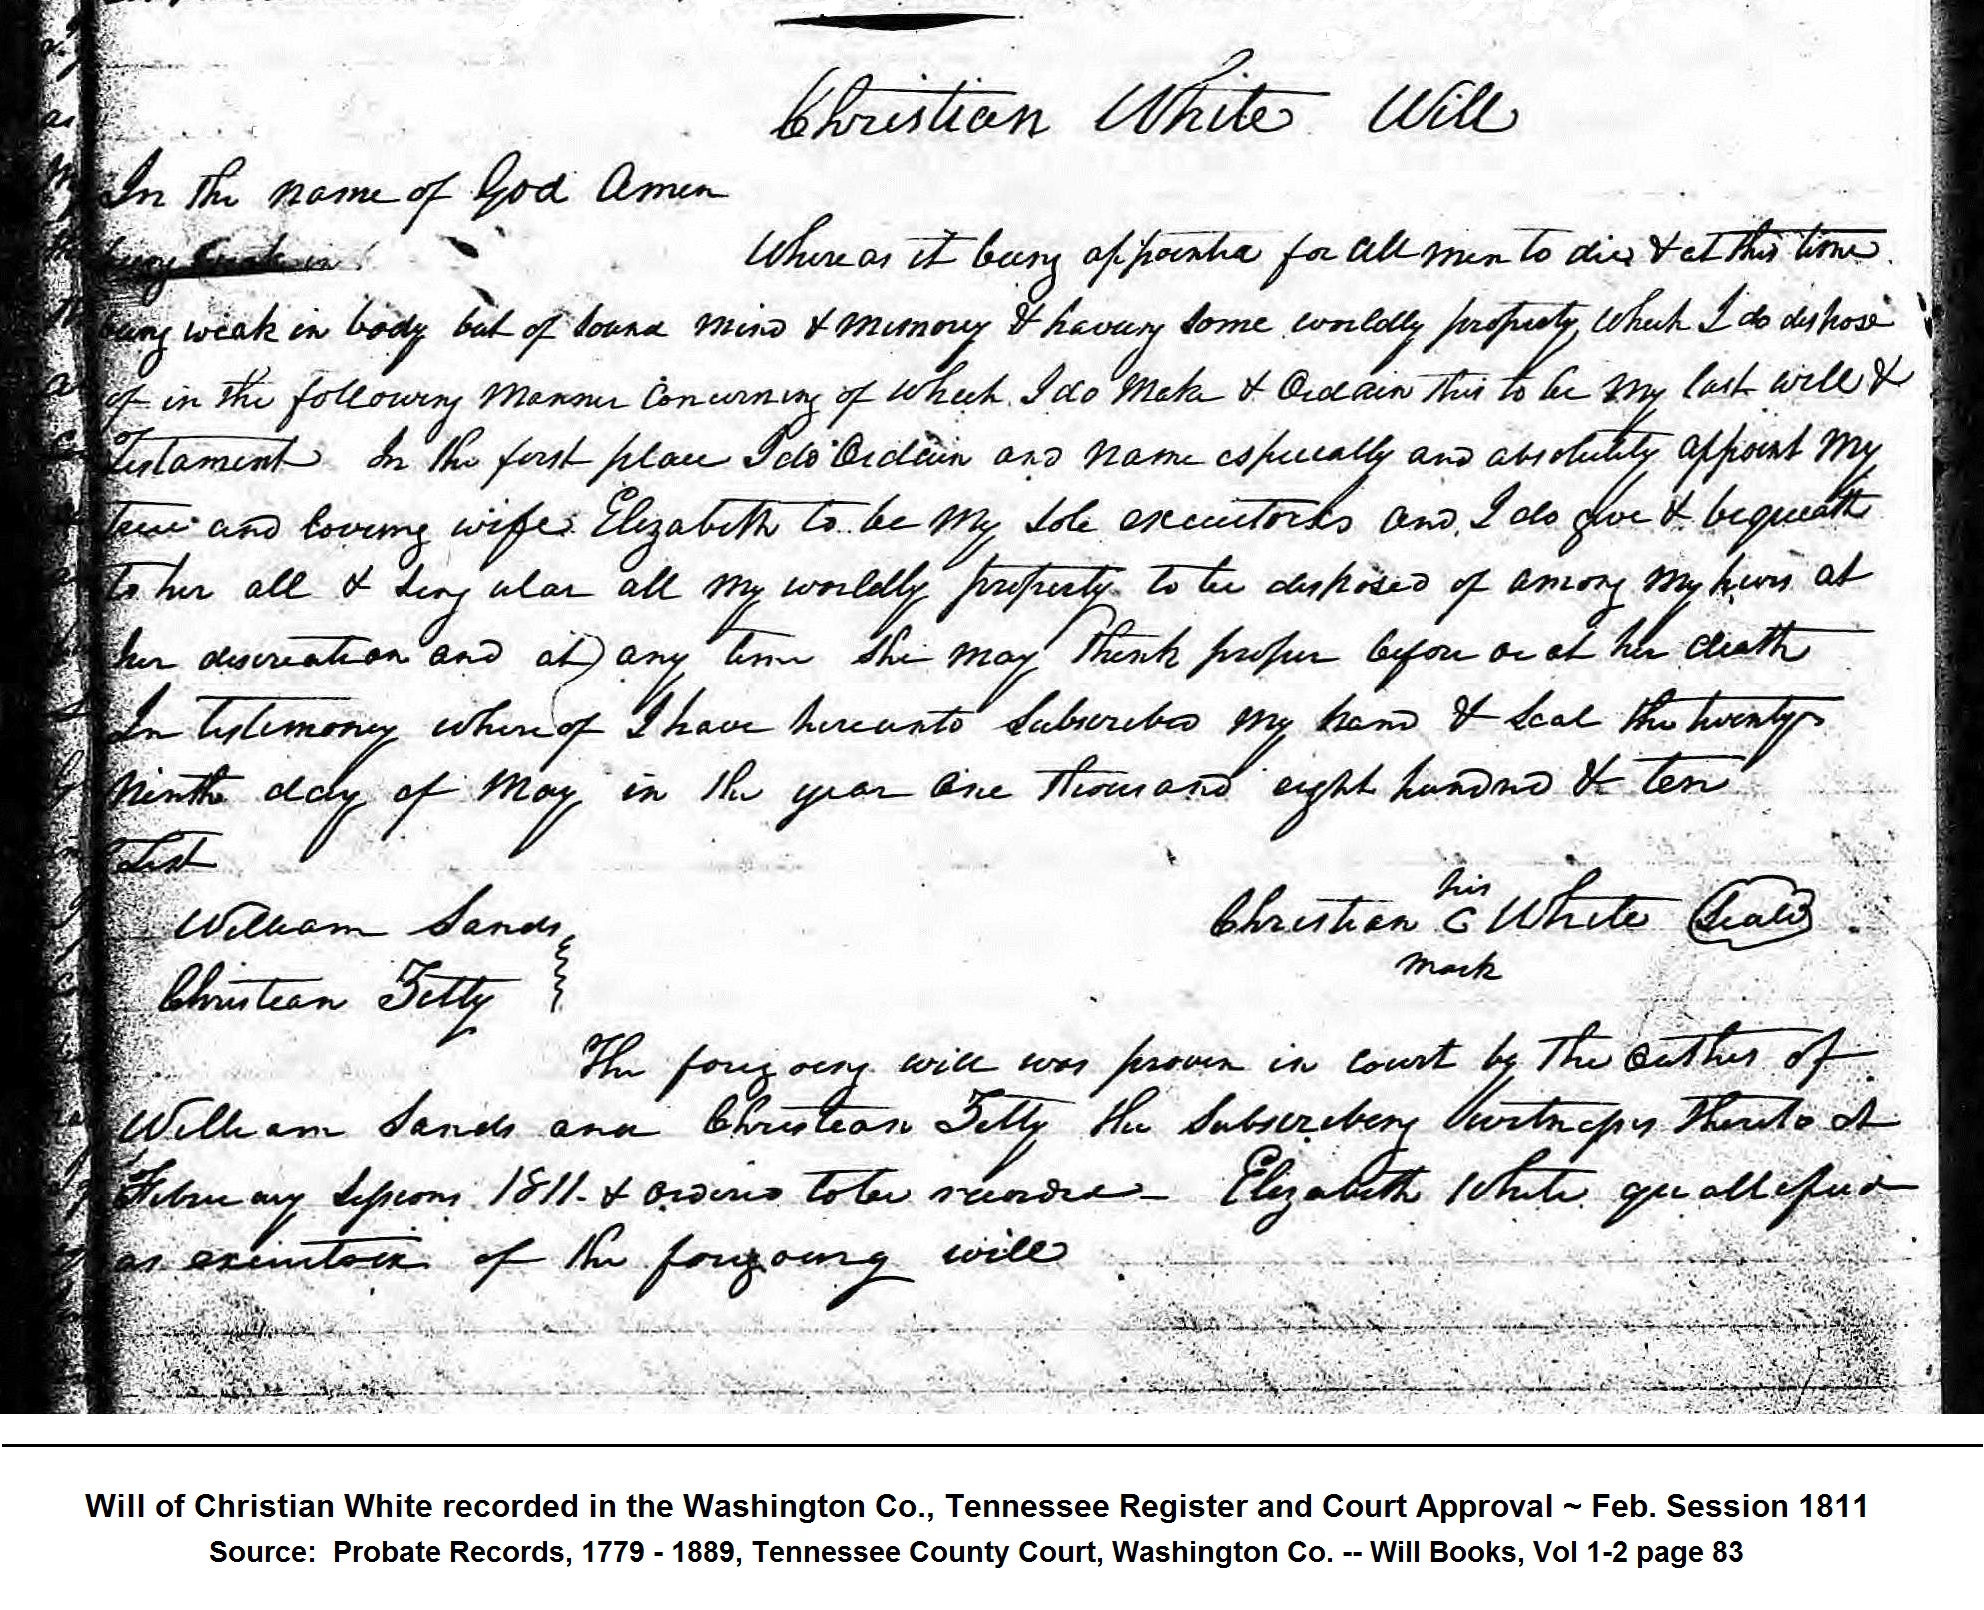 Christian White Will
In the name of God Amen
being weak in
Whereas it being appointed for all men to die & at this time
being weak in body but of sound mind & memory & having some worldly property which I do dispose
of in the following manner concerning of which I do make & ordain this to be my last will &
Testament In the first place I do ordain and name especially and absolutely appoint my
true and loving wife Elizabeth to be my sole executorks and I do give & bequeath
to her all & singular all my worldly property to be disposed of among my heirs at
her discreation and at any time she may think proper before or at her death
In testimoney whereof I have hereunto subscribed my hand & seal the twenty
ninth day of May in the year one thousand eight hundred & ten
Test
William Sands
Christian Zetty
his
Christian C White Seal
mark
The foregoing will was proven in court by the oathes of
William Sands and Christian Zetty the subscribing witnesses thereto at
February Sessions 1811 & ordered to be recorded Elizabeth White quallefied
as executorix of the foregoing will
Will of Christian White recorded in the Washington Co., Tennessee Register and Court Approval ~ Feb. Session 1811
Source: Probate Records, 1779 - 1889, Tennessee County Court, Washington Co. -- Will Books, Vol 1-2 page 83